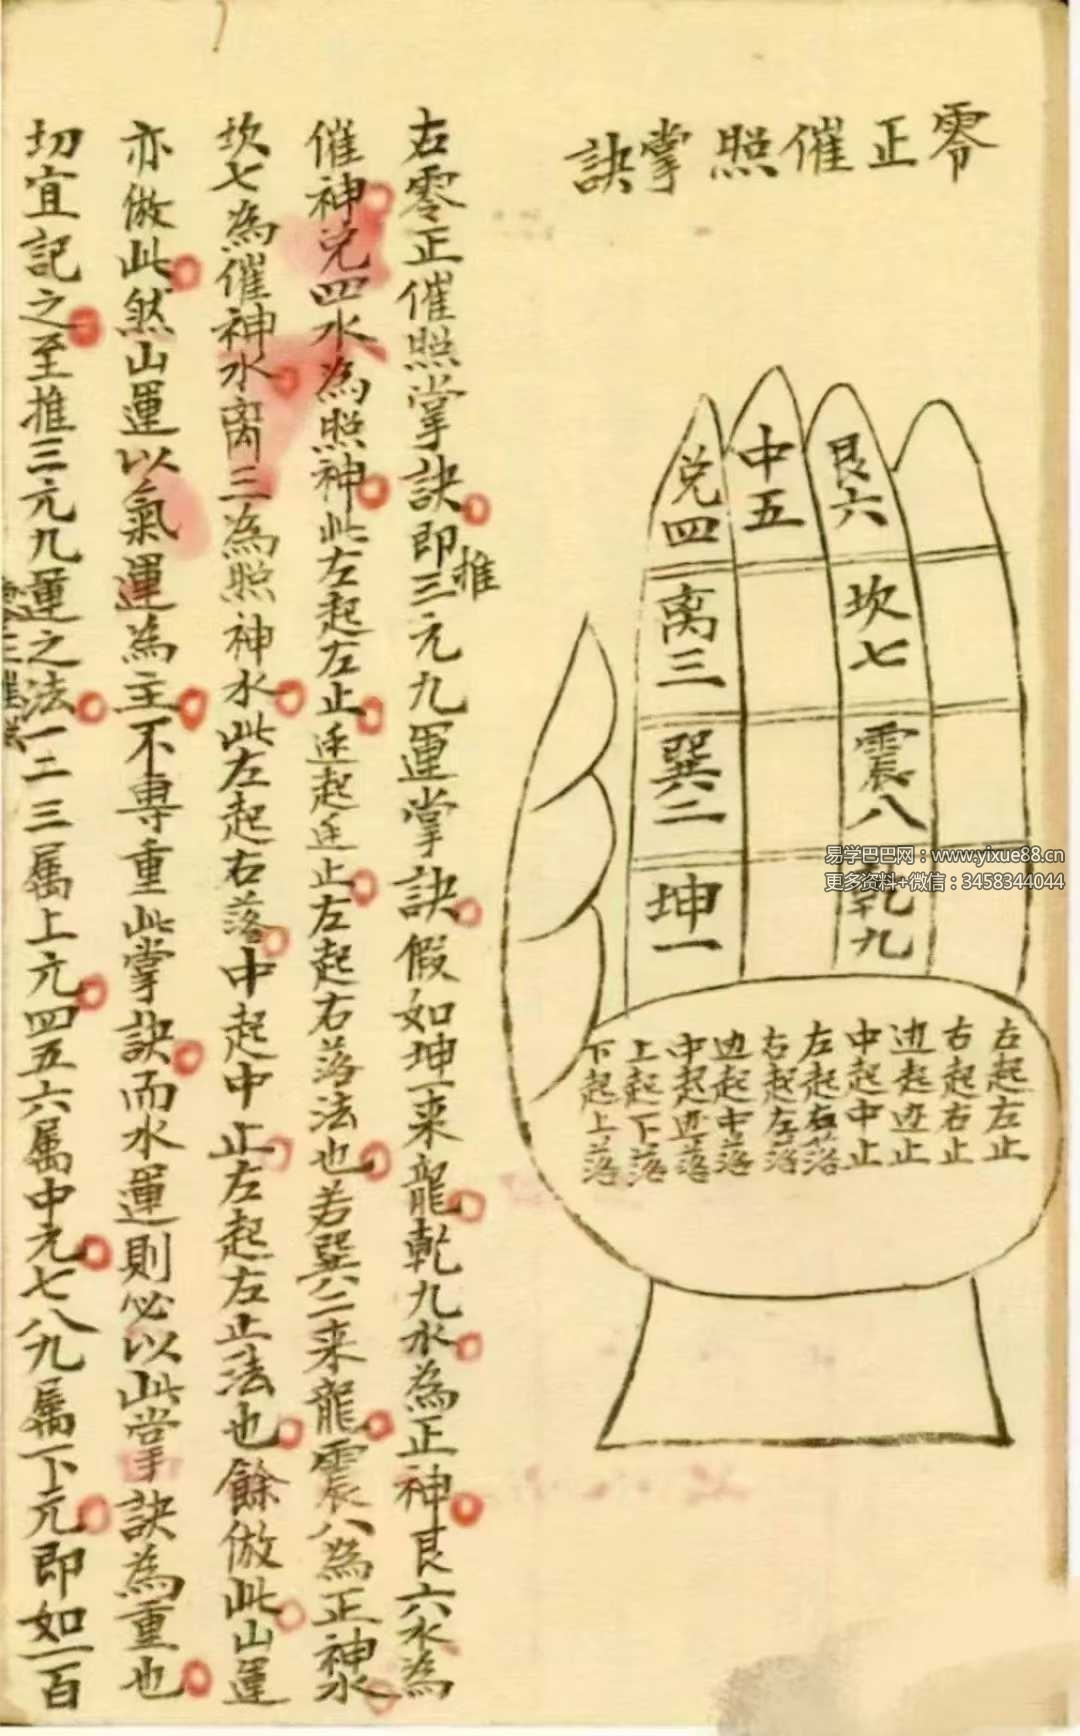 零正催照掌訣
兑四
离三
巽二
坤一
中五
艮六
坎七
震八
乾九
左起左止
右起右止
边起边止
中起中止
左起右落
右起左落
边起中落
中起边落
上起下落
下起上落
右零正催照掌訣即推三元九運掌訣假如坤一来龍乾九水為正神艮六水為
催神兑四水為照神此左起左止边起边止左起右落法也若巽二来龍震八為正神水
坎七為催神水离三為照神水此左起右落中起中止左起左止法也餘倣此山運
亦倣此然山運以氣運為主不專重此掌訣而水運則必以此掌訣為重也
切宜記之至推三元九運之法一二三屬上元四五六屬中元七八九屬下元即如一百
易学巴巴网：www.yixue88.cn
更多资料+微信：3458344044